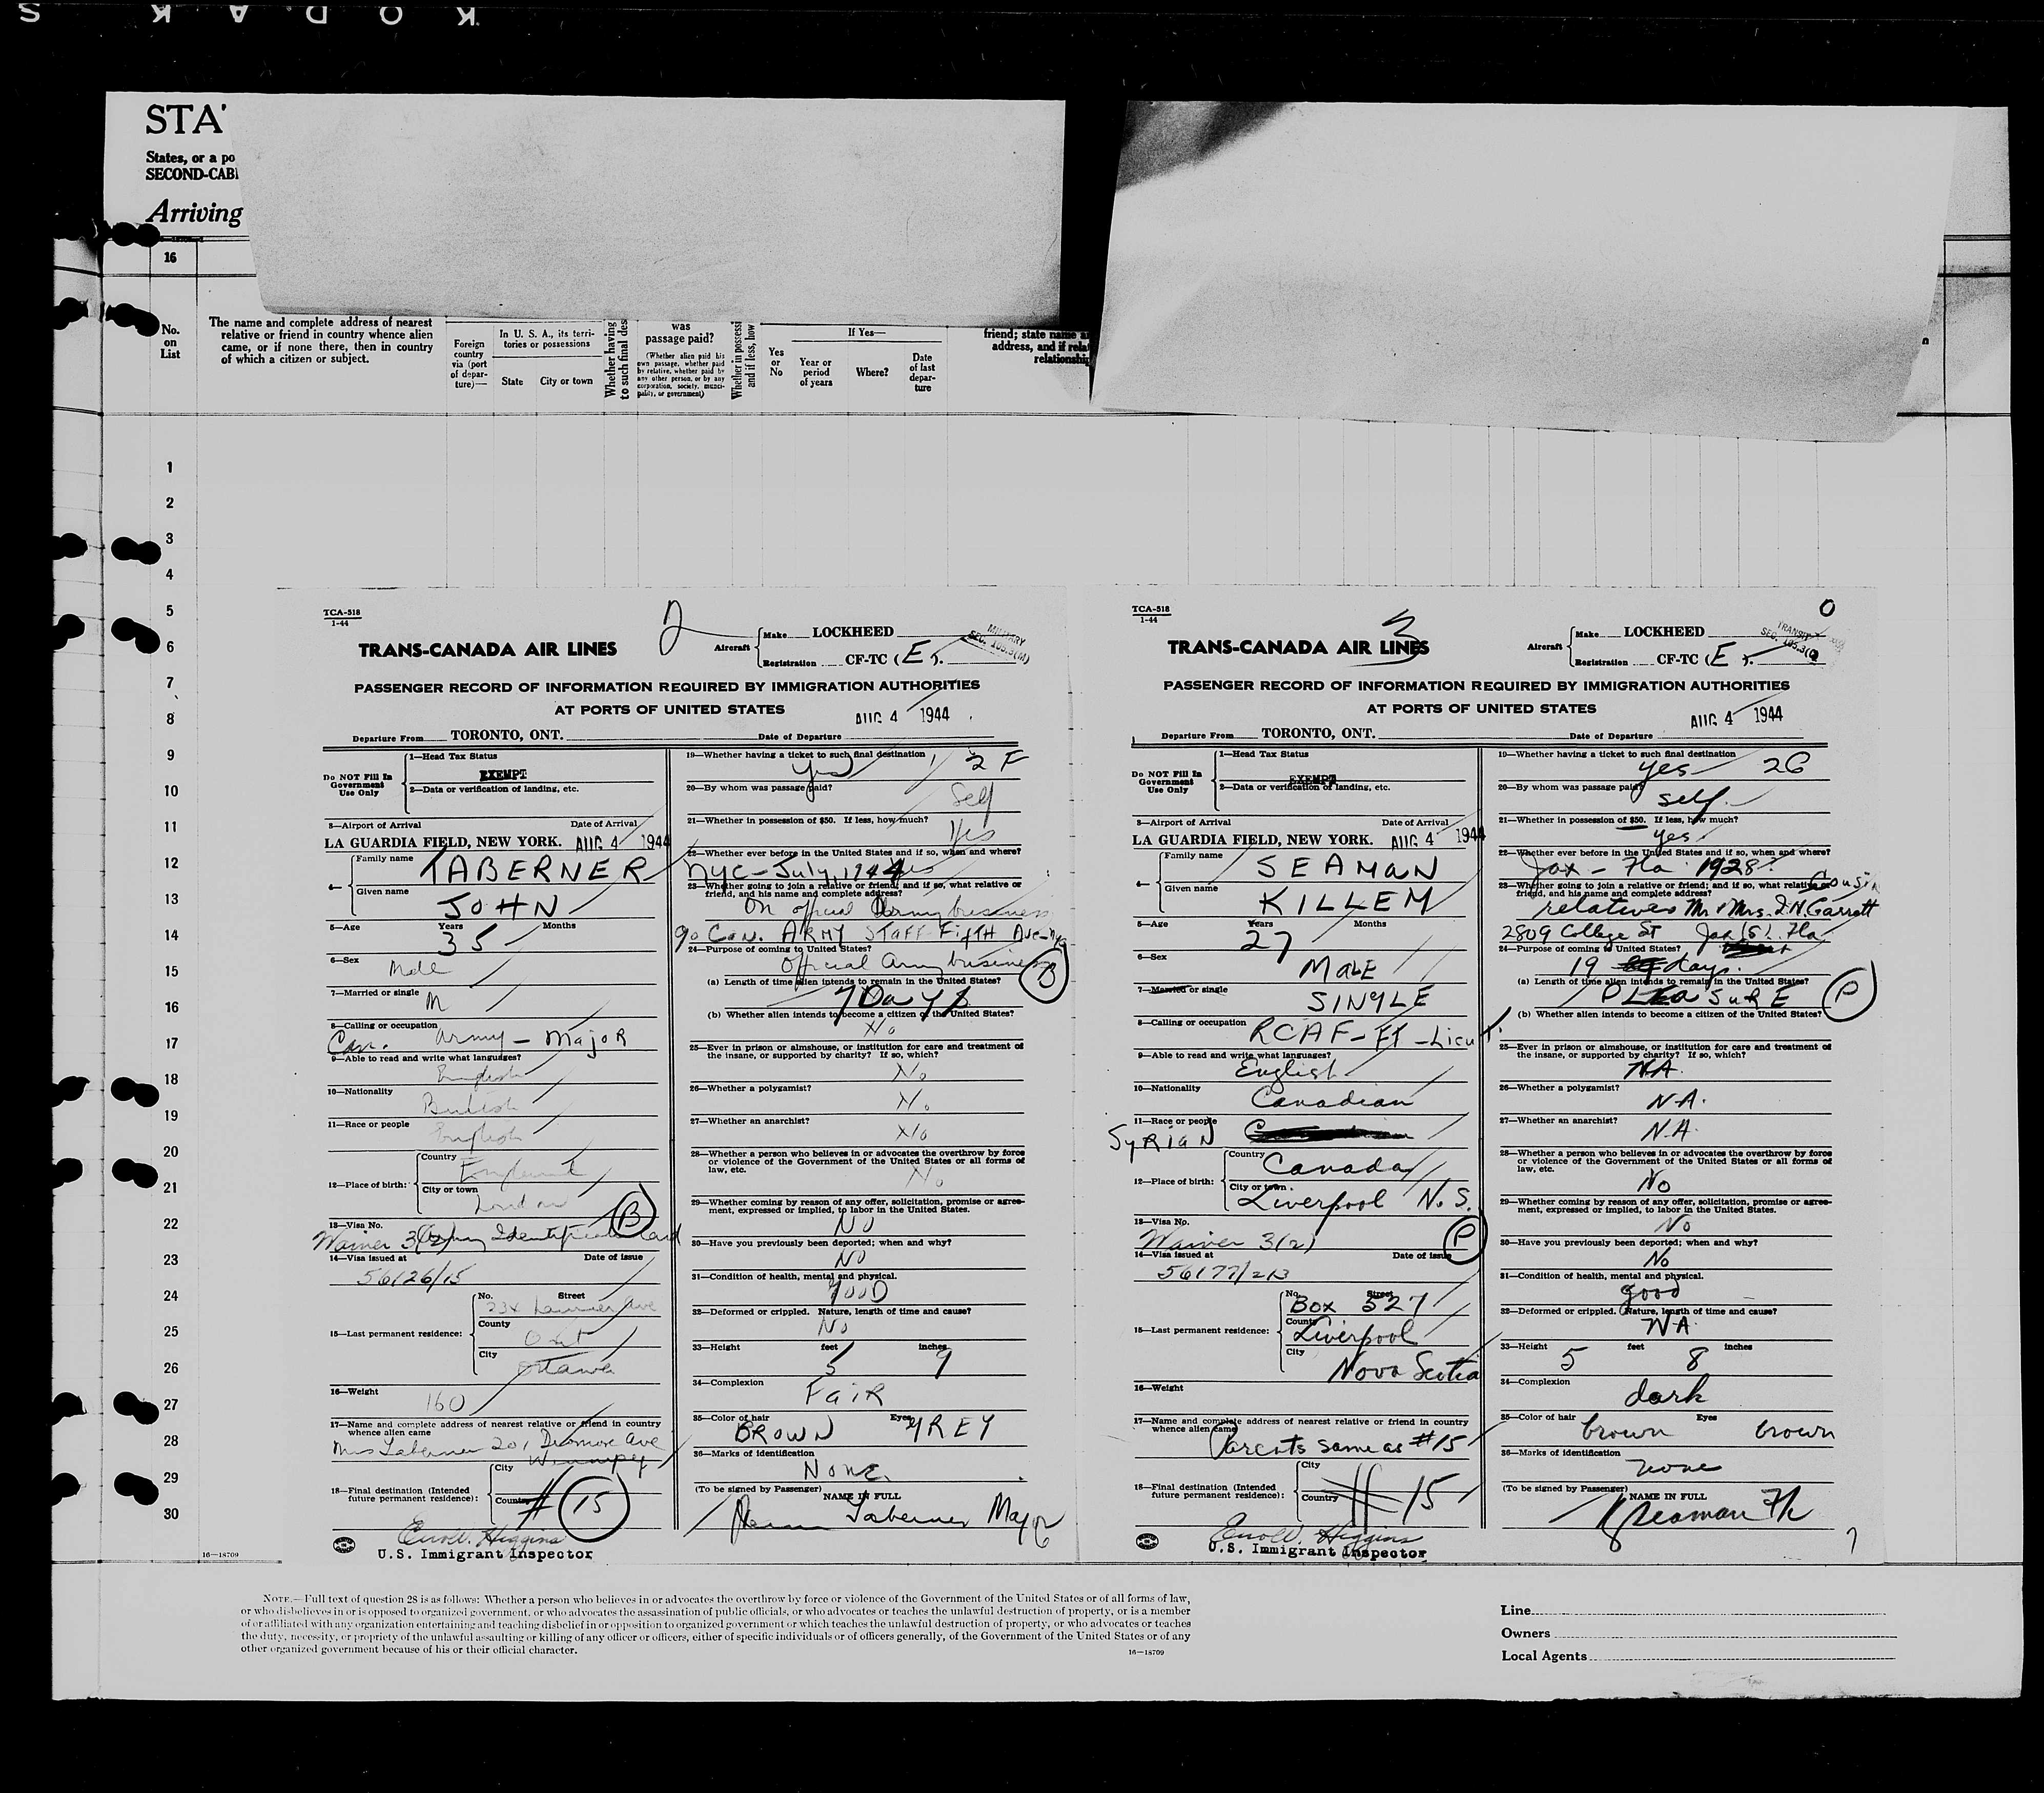 KODAK S
STA
States, or a po
SECOND-CABI
Arriving
16
No. on List
The name and complete address of nearest
relative or friend in country whence alien
came, or if none there, then in country
of which a citizen or subject.
Foreign country via (port of depar-ture)—
In U. S. A., its terri-
tories or possessions
State City or town
Whether having
to such final des
was
passage paid?
(Whether alien paid his
own passage, whether paid
by relative, whether paid by
any other person, or by any
corporation, society, munici-
pality, or government)
Whether in possessi
and if less, how
Yes or No
If Yes—
Year or period of years
Where?
Date of last depar-ture
friend; state name a
address, and if rela
relationship
1
2
3
4
5
6
7
8
9
10
11
12
13
14
15
16
17
18
19
20
21
22
23
24
25
26
27
28
29
30
16—18709
TCA-518
1-44
2
TRANS-CANADA AIR LINES
Aircraft Make LOCKHEED
Registration CF-TC (E).
MILITARY
SEC. 105.3(M)
PASSENGER RECORD OF INFORMATION REQUIRED BY IMMIGRATION AUTHORITIES
AT PORTS OF UNITED STATES
AUG 4 1944
Departure From TORONTO, ONT. Date of Departure
Do NOT Fill In
Government
Use Only
1—Head Tax Status
EXEMPT
2—Data or verification of landing, etc.
3—Airport of Arrival Date of Arrival
LA GUARDIA FIELD, NEW YORK. AUG 4 1944
4— Family name
TABERNER
Given name
JOHN
5—Age Years Months
35
6—Sex
Male
7—Married or single
M
8—Calling or occupation
Can. Army – Major
9—Able to read and write what languages?
English
10—Nationality
British
11—Race or people
English
12—Place of birth: Country
England
City or town
London
B
13—Visa No.
Waiver 3(2) Army Identification Card
14—Visa issued at Date of issue
56126/15
15—Last permanent residence: No. Street
Laurier Ave
County
Ont
City
Ottawa
16—Weight
160
17—Name and complete address of nearest relative or friend in country
whence alien came
Mrs Taberner 201 Ave
Winnipeg
18—Final destination (Intended
future permanent residence): City
Country
# 15
Errol W. Higgins
U.S. Immigrant Inspector
19—Whether having a ticket to such final destination
yes 2 F
20—By whom was passage paid?
Self
21—Whether in possession of $50. If less, how much?
Yes
22—Whether ever before in the United States and if so, when and where?
NYC – July, 1944 yes
23—Whether going to join a relative or friend; and if so, what relative or
friend, and his name and complete address?
On official Army business
90 Can. ARMY Staff Fifth Ave – NYC
24—Purpose of coming to United States?
Official Army business
B
(a) Length of time alien intends to remain in the United States?
7 Days
(b) Whether alien intends to become a citizen of the United States?
No
25—Ever in prison or almshouse, or institution for care and treatment of
the insane, or supported by charity? If so, which?
No
26—Whether a polygamist?
No
27—Whether an anarchist?
No
28—Whether a person who believes in or advocates the overthrow by force
or violence of the Government of the United States or all forms of
law, etc.
No
29—Whether coming by reason of any offer, solicitation, promise or agree-
ment, expressed or implied, to labor in the United States.
NO
30—Have you previously been deported; when and why?
NO
31—Condition of health, mental and physical.
GOOD
32—Deformed or crippled. Nature, length of time and cause?
No
33—Height feet inches
5 9
34—Complexion
FAIR
35—Color of hair Eyes
BROWN GREY
36—Marks of identification
None.
(To be signed by Passenger) NAME IN FULL
Taberner Major
TCA-518
1-44
3
0
TRANS-CANADA AIR LINES
Aircraft Make LOCKHEED
Registration CF-TC (E).
TRANSIT
SEC. 105.3(
PASSENGER RECORD OF INFORMATION REQUIRED BY IMMIGRATION AUTHORITIES
AT PORTS OF UNITED STATES
AUG 4 1944
Departure From TORONTO, ONT. Date of Departure
Do NOT Fill In
Government
Use Only
1—Head Tax Status
EXEMPT
2—Data or verification of landing, etc.
3—Airport of Arrival Date of Arrival
LA GUARDIA FIELD, NEW YORK. AUG 4 1944
4— Family name
SEAMAN
Given name
KILLEM
5—Age Years Months
27
6—Sex
MALE
7—Married or single
SINGLE
8—Calling or occupation
RCAF – Ft – Lieut.
9—Able to read and write what languages?
English
10—Nationality
Canadian
11—Race or people
SYRIAN
12—Place of birth: Country
Canada
City or town
Liverpool N.S.
P
13—Visa No.
Waiver 3(2)
14—Visa issued at Date of issue
56177/213
15—Last permanent residence: No. Street
Box 527
County
Liverpool
City
Nova Scotia
16—Weight
17—Name and complete address of nearest relative or friend in country
whence alien came
Parents same as #15
18—Final destination (Intended
future permanent residence): City
Country
# 15
Errol W. Higgins
U.S. Immigrant Inspector
19—Whether having a ticket to such final destination
yes 2G
20—By whom was passage paid?
self.
21—Whether in possession of $50. If less, how much?
yes.
22—Whether ever before in the United States and if so, when and where?
Jax – Fla 1928.
23—Whether going to join a relative or friend; and if so, what relative or
friend, and his name and complete address?
Cousin
relatives Mr & Mrs. J.N. Garrott
2809 College St Jax (5). Fla
24—Purpose of coming to United States?
19 days.
(a) Length of time alien intends to remain in the United States?
PLEASURE
P
(b) Whether alien intends to become a citizen of the United States?
25—Ever in prison or almshouse, or institution for care and treatment of
the insane, or supported by charity? If so, which?
NA.
26—Whether a polygamist?
N.A.
27—Whether an anarchist?
N.A.
28—Whether a person who believes in or advocates the overthrow by force
or violence of the Government of the United States or all forms of
law, etc.
No
29—Whether coming by reason of any offer, solicitation, promise or agree-
ment, expressed or implied, to labor in the United States.
No
30—Have you previously been deported; when and why?
No
31—Condition of health, mental and physical.
good
32—Deformed or crippled. Nature, length of time and cause?
NA.
33—Height feet inches
5 8
34—Complexion
dark
35—Color of hair Eyes
brown brown
36—Marks of identification
none
(To be signed by Passenger) NAME IN FULL
K Seaman
NOTE.—Full text of question 28 is as follows: Whether a person who believes in or advocates the overthrow by force or violence of the Government of the United States or of all forms of law,
or who disbelieves in or is opposed to organized government, or who advocates the assassination of public officials, or who advocates or teaches the unlawful destruction of property, or is a member
of or affiliated with any organization entertaining and teaching disbelief in or opposition to organized government or which teaches the unlawful destruction of property, or who advocates or teaches
the duty, necessity, or propriety of the unlawful assaulting or killing of any officer or officers, either of specific individuals or of officers generally, of the Government of the United States or of any
other organized government because of his or their official character.
16—18709
Line
Owners
Local Agents